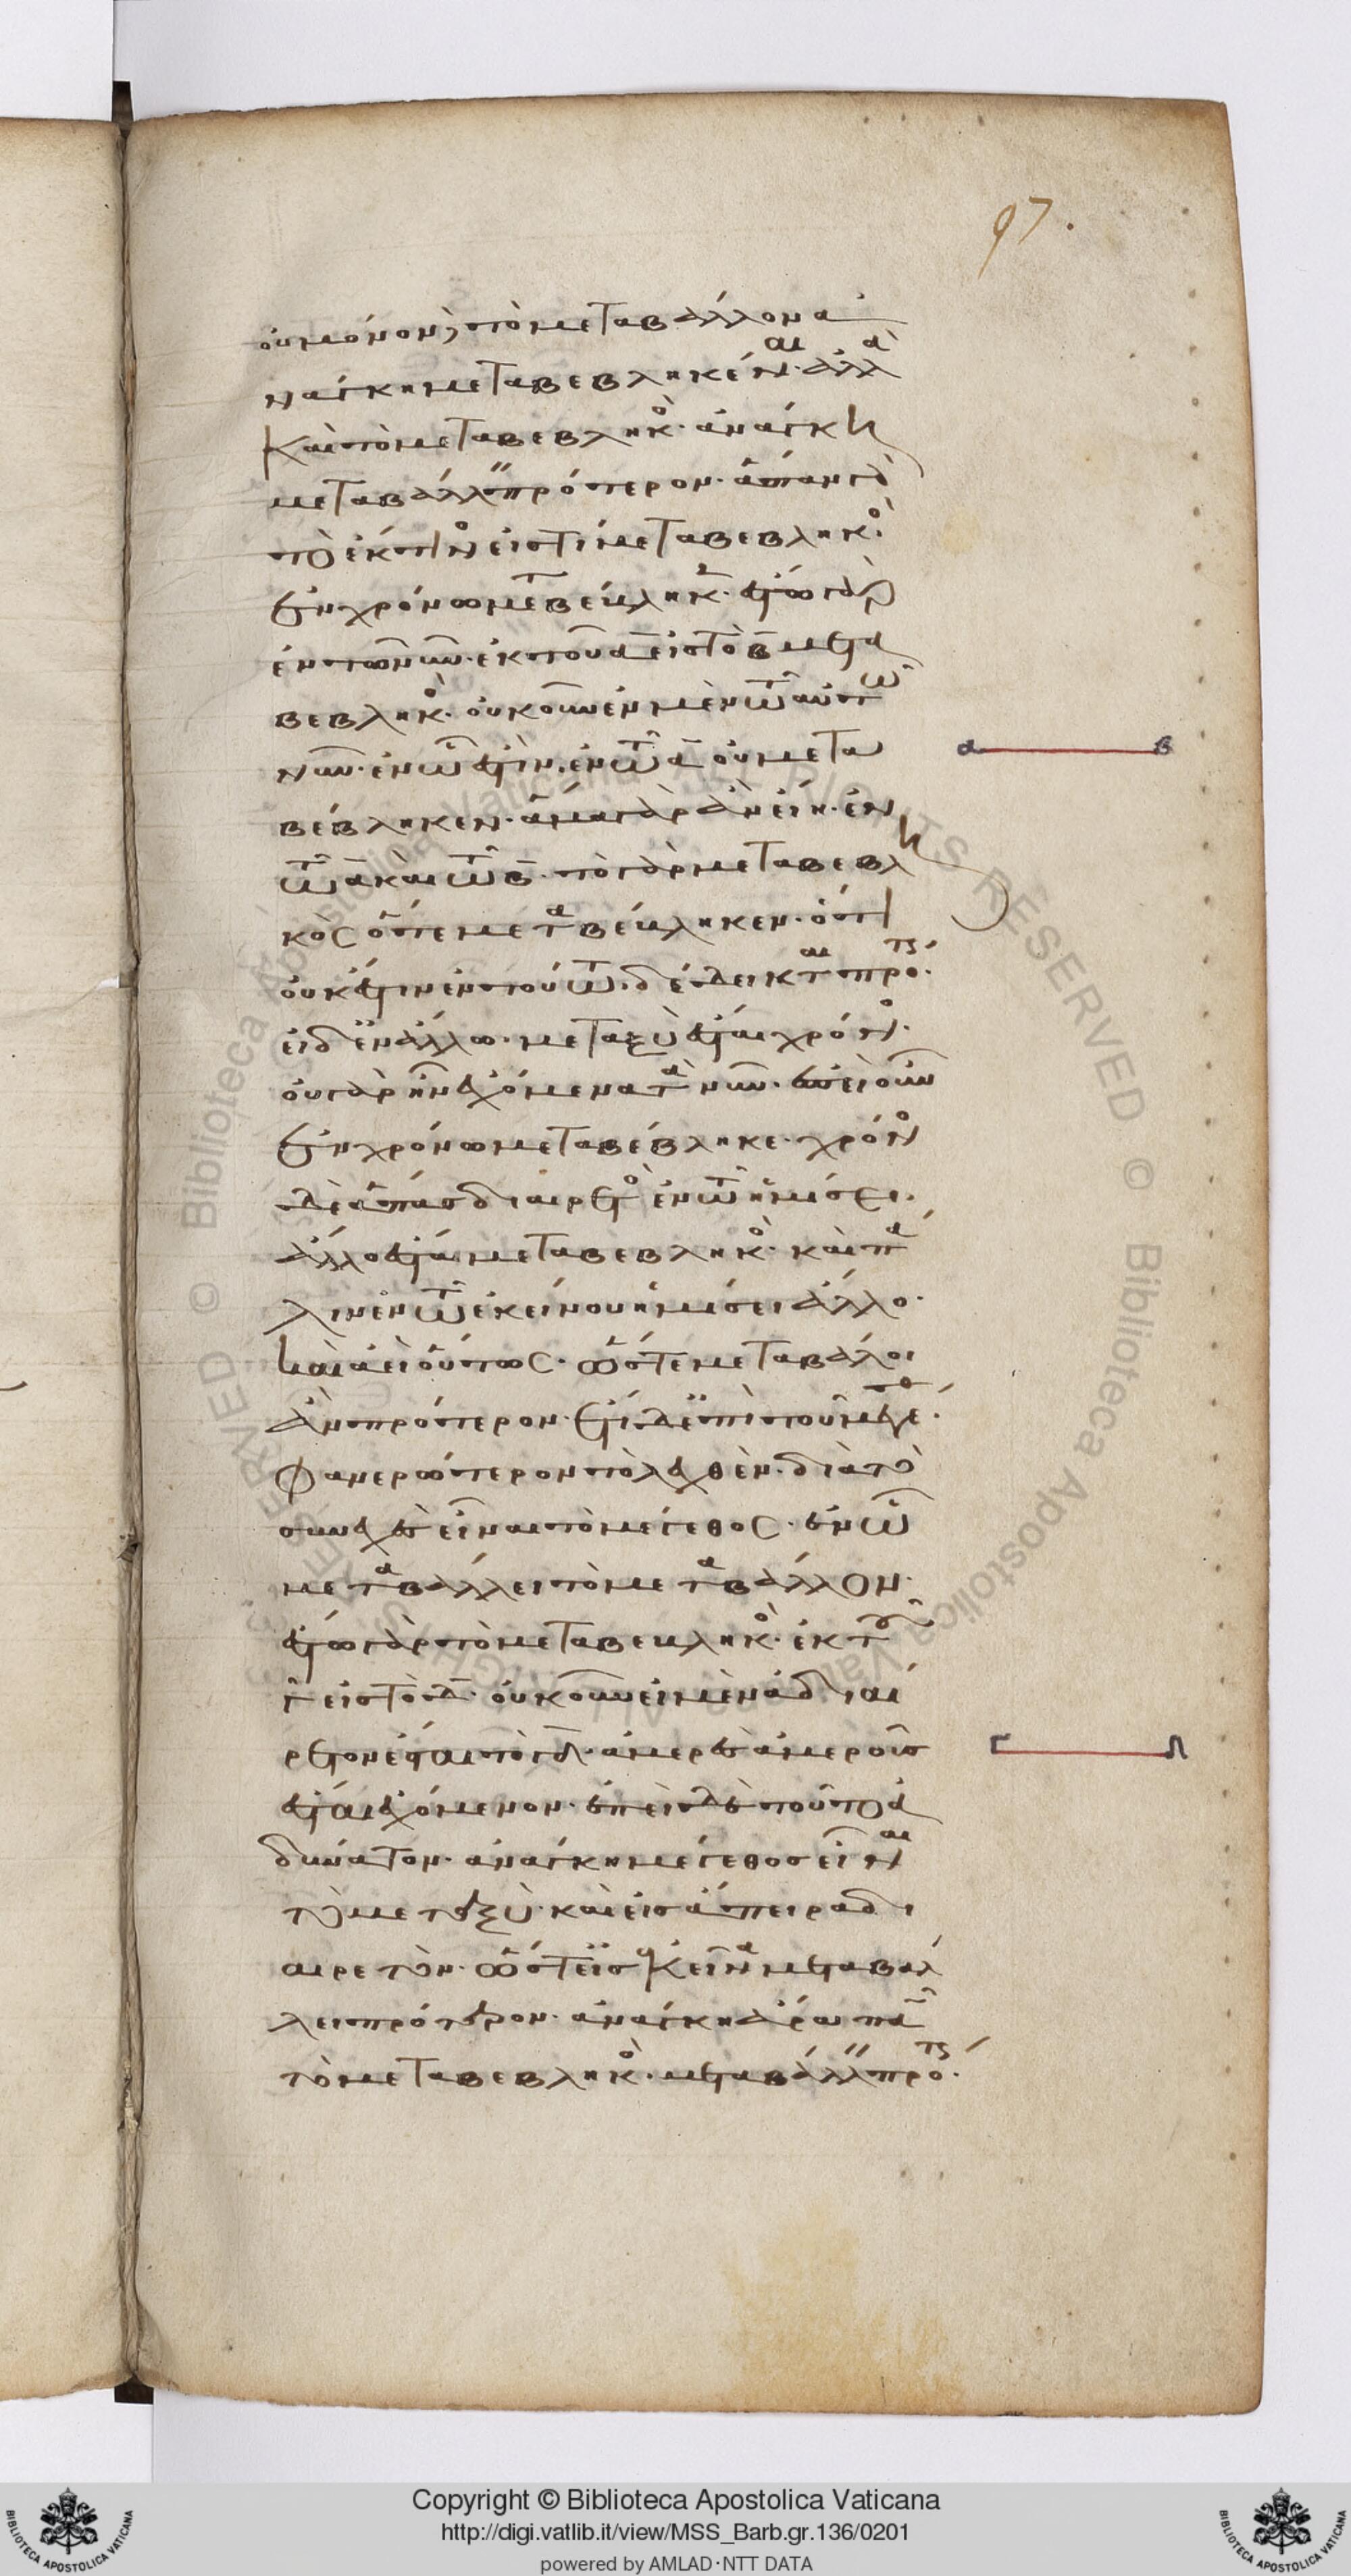 97.
οὐ μόνον δὲ τὸ μεταβάλλον ἀ
νάγκη μεταβεβληκέναι· ἀλλὰ
καὶ τὸ μεταβεβληκὸς ἀνάγκη
μεταβάλλειν πρότερον· ἅπαν γὰρ
τὸ ἔκ τινος εἴς τι μεταβεβληκὸς
ἐν χρόνω μεταβέβληκεν· ἔστω γὰρ
ἐν τῶ νῦν· ἐκ τοῦ α εἰς τὸ β μετα
βεβληκὸς· οὐκοῦν ἐν μὲν τῶ αὐτῶ
νῦν· ἐν ὧ ἐστὶν ἐν τῶ α οὐ μετα
βέβληκεν· ἅμα γὰρ ἂν εἴη· ἐν
τῶ α καὶ τῶ β· τὸ γὰρ μεταβεβλη
κὸς ὅτε μεταβέβληκεν· ὅτι
οὐκ ἔστιν ἐν τούτω· δέδεικται πρότερον·
εἰ δ' ἐν ἄλλω· μεταξὺ ἔσται χρόνος·
οὐ γὰρ ἦν ἐχόμενα τὰ νῦν· ἐπεὶ οὖν
ἐν χρόνω μεταβέβληκε· χρόνος
δὲ ἅπας διαιρετὸς ἐν τῶ ἡμίσει·
ἄλλο ἔσται μεταβεβληκὸς· καὶ πά
λιν ἐν τῶ ἐκείνου ἡμίσει ἄλλο·
καὶ ἀεὶ οὕτως· ὥστε μεταβάλοι
ἂν πρότερον· ἔτι δ' ἐπὶ τοῦ μεγέθους
φανερώτερον τὸ λεχθὲν· διὰ τὸ
συνεχὲς εἶναι τὸ μέγεθος· ἐν ὧ
μεταβάλλει τὸ μεταβάλλον·
ἔστω γὰρ τὸ μεταβεβληκὸς· ἐκ τοῦ
γ εἰς τὸ δ· οὐκοῦν εἰ μὲν ἀδιαί
ρετον ἔσται τὸ γδ· ἀμερὲς ἀμεροῦς
ἔσται ἐχόμενον· ἐπεὶ δὲ τοῦτο ἀ
δύνατον· ἀνάγκη μέγεθος εἶναι
τὸ μεταξὺ· καὶ εἰς ἄπειρα δι
αιρετὸν· ὥστ' εἰς ἐκεῖνα μεταβάλ
λει πρότερον· ἀνάγκη ἄρα πᾶν
τὸ μεταβεβληκὸς· μεταβάλλειν πρότερον·
α β
Γ Δ
© Biblioteca Apostolica Vaticana
Copyright © Biblioteca Apostolica Vaticana
http://digi.vatlib.it/view/MSS_Barb.gr.136/0201
powered by AMLAD·NTT DATA